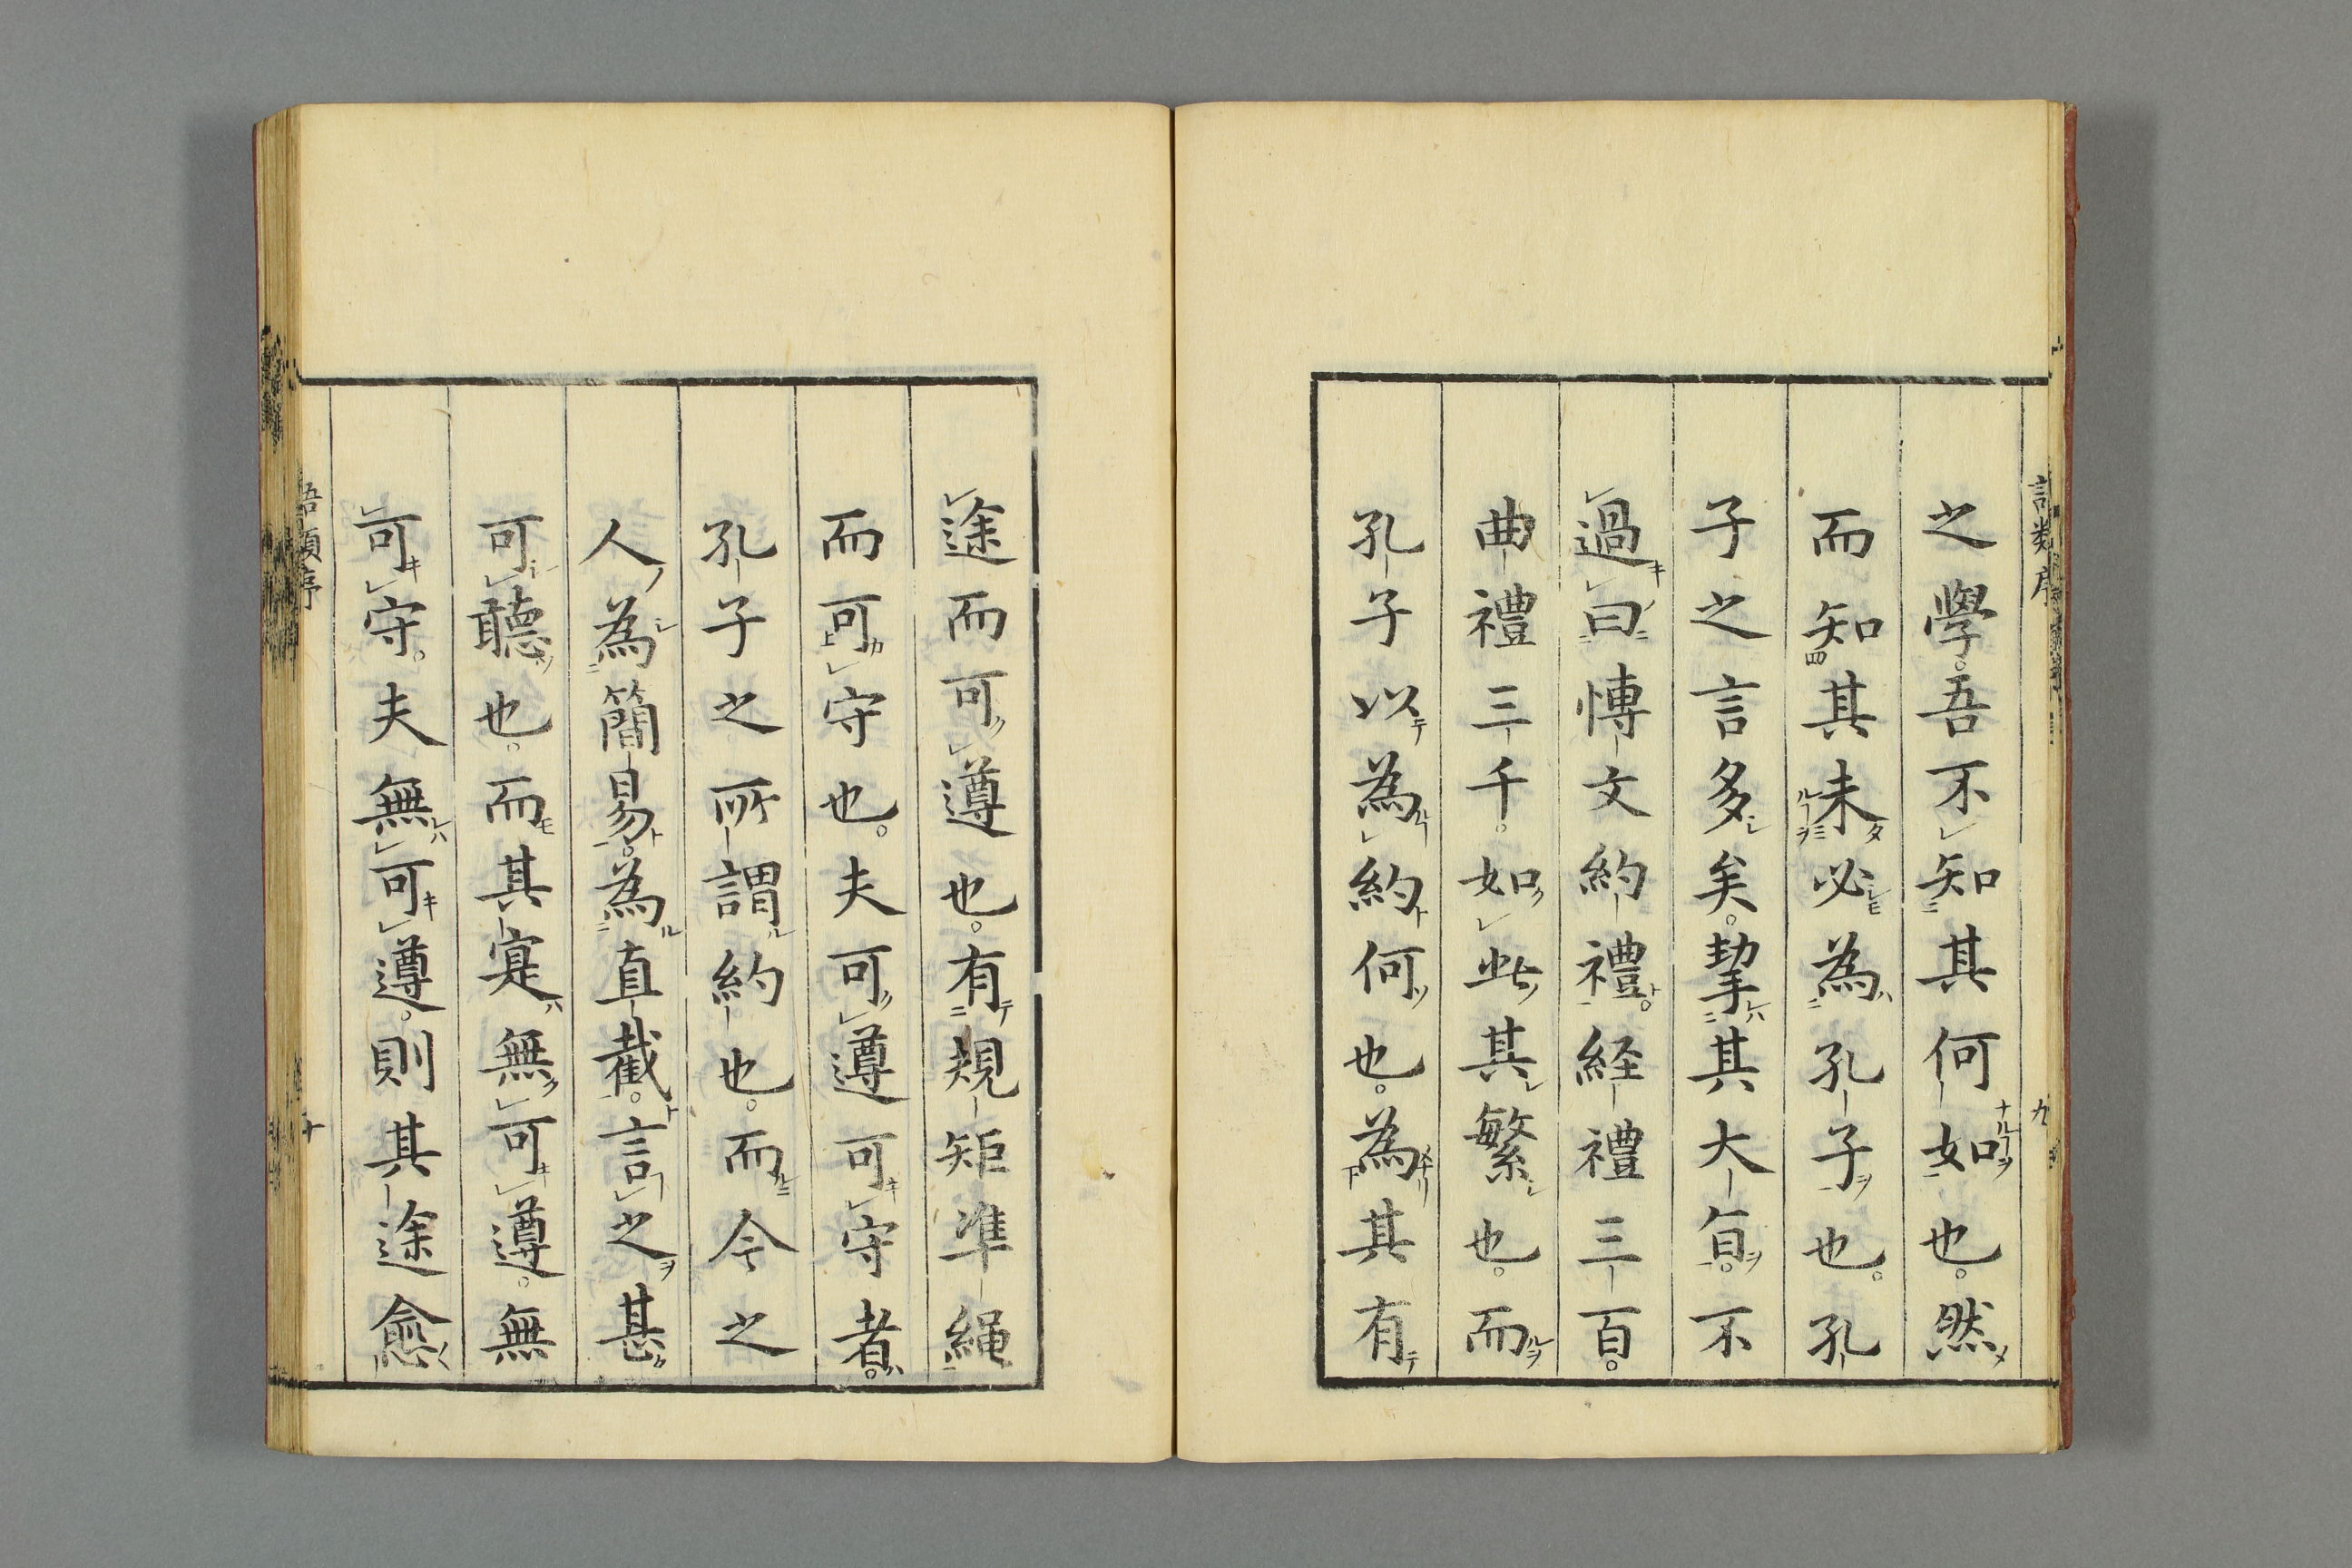 之學。吾不知其何如也。然
而知其未必為孔子也。孔
子之言多矣。挈其大旨。不
過曰博文約禮。経禮三百。
曲禮三千。如此其繁也。而
孔子以為約何也。為其有
途而可遵也。有規矩準繩
而可守也。夫可遵可守者。
孔子之所謂約也。而今之
人為簡易。為直截。言之甚
可聽也。而其寔無可遵。無
可守。夫無可遵。則其途愈